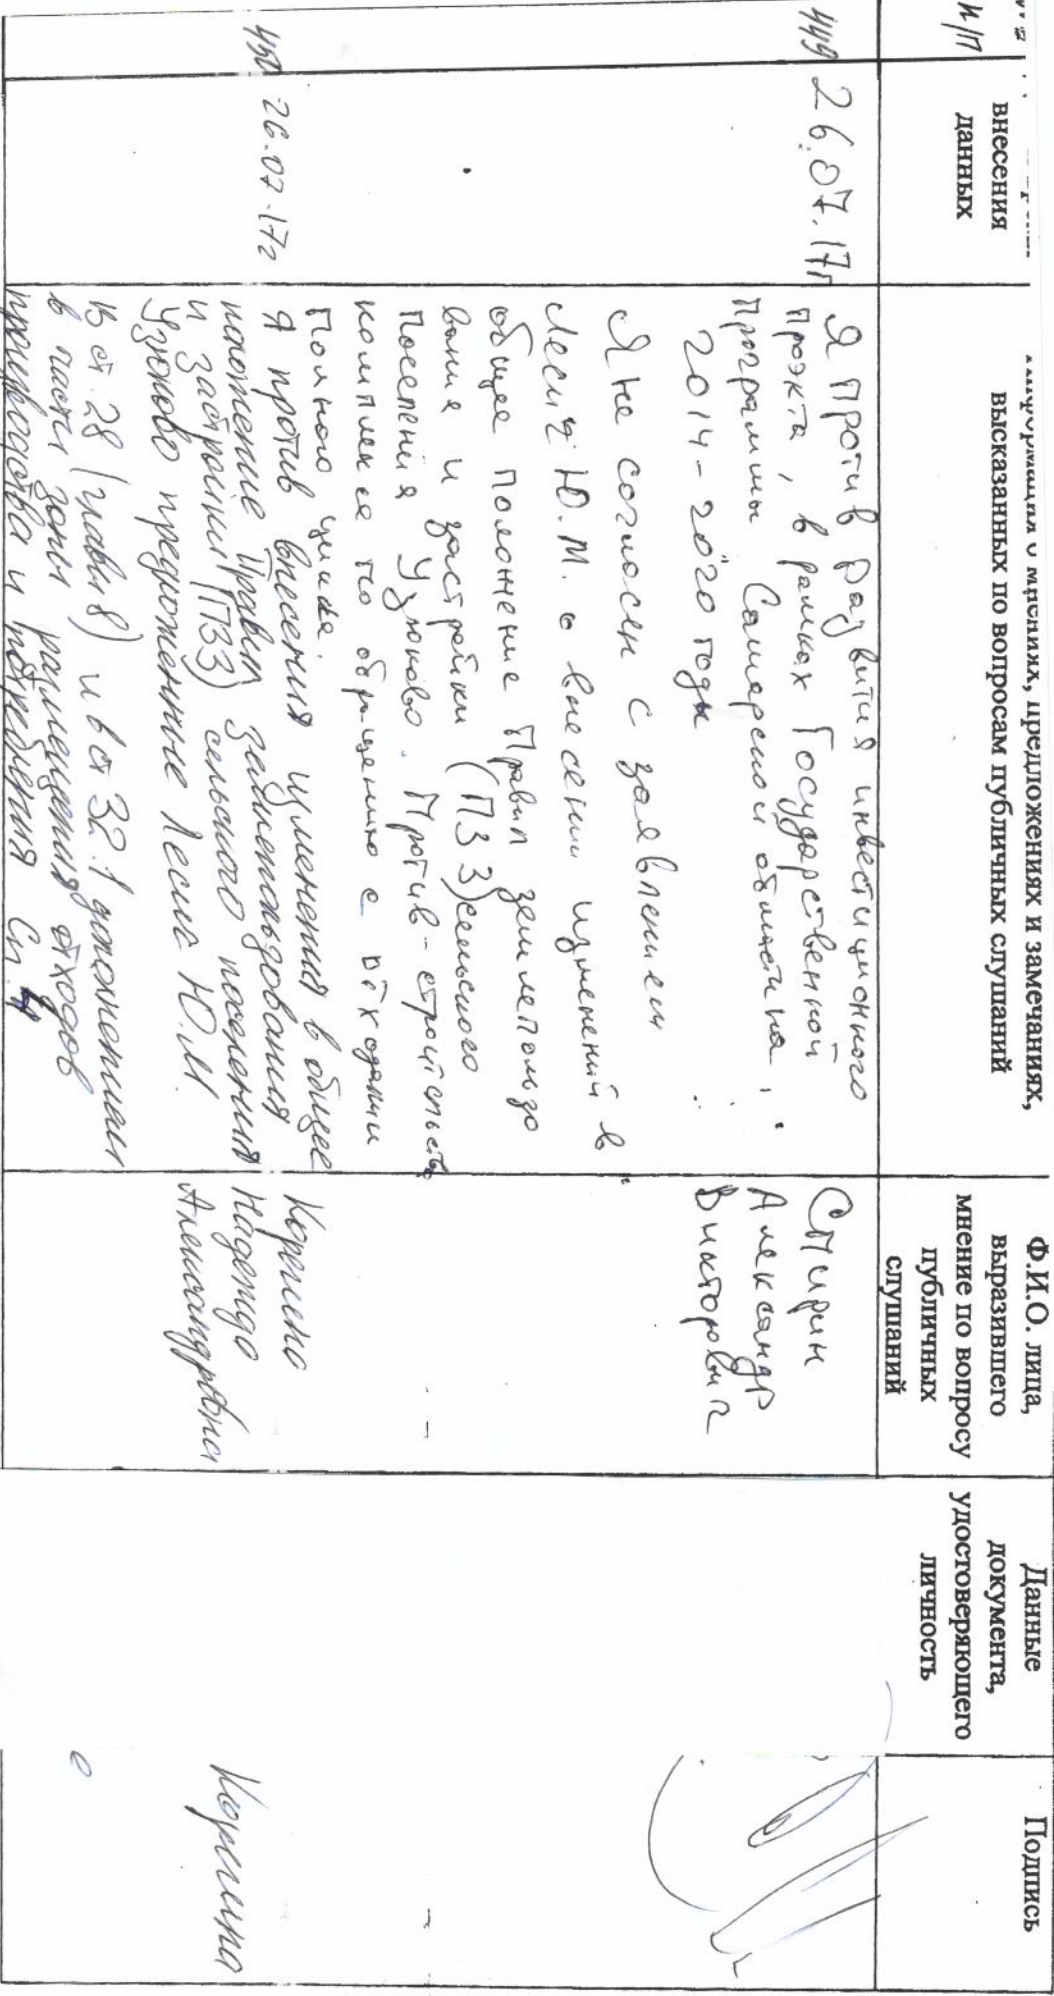 п/п
внесения
данных
мнениях, предложениях и замечаниях,
высказанных по вопросам публичных слушаний
Ф.И.О. лица,
выразившего
мнение по вопросу
публичных
слушаний
Данные
документа,
удостоверяющего
личность
Подпись
449
26.07.17г
Я против Развития инвестиционного
проэкта, в рамках Государственной
программы Самарской области на
2014-2020 годы
Я не согласен с заявлением
Лесит Ю.М. о внесении изменений в
общее положение Правил землепользо
вания и застройки (ПЗЗ) сельского
Поселения Узюково. Против-строительства
комплекса по обращению с отходами
Полного цикла.
Смирин
Александр
Викторович
450
26.07.17г
Я против внесения изменения в общее
положение Правил землепользования
и застройки (ПЗЗ) сельского поселения
Узюково предложенные Лесит Ю.М.
в ст.28 (глава 8) и в ст 32.1 дополнением
в части зоны размещения отходов
производства и потребления Сп
Корнина
Надежда
Александровна
Корнина